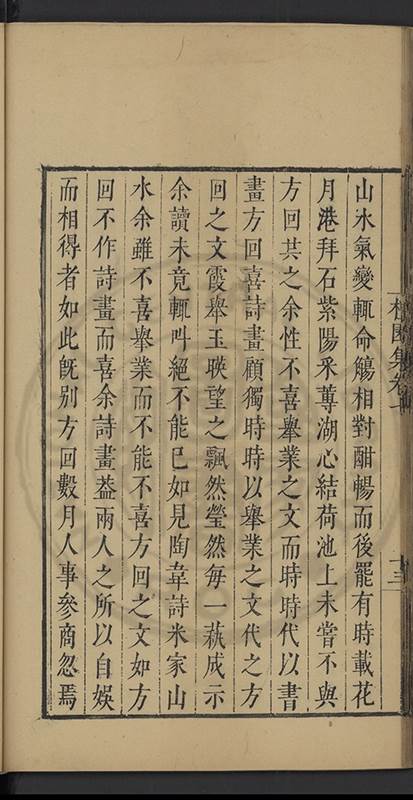 山水氣變輒命觴相對酣暢而後罷有時載花
月港拜石紫陽采蓴湖心結荷池上未嘗不與
方回共之余性不喜舉業之文而時時代以書
畫方回喜詩畫顧獨時時以舉業之文代之方
回之文霞舉玉映望之飄然瑩然每一蓺成示
余讀未竟輒叫絕不能已如見陶韋詩米家山
水余雖不喜舉業而不能不喜方回之文如方
回不作詩畫而喜余詩畫葢兩人之所以自娛
而相得者如此既别方回數月人事參商忽焉